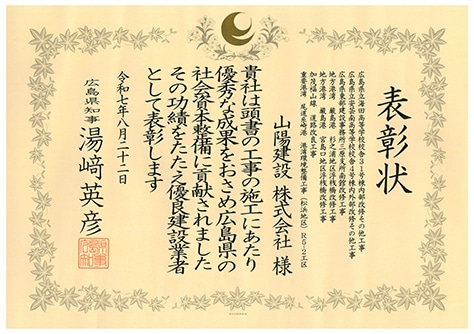 表彰状
広島県立海田高等学校校舎31号棟内部改修その他工事
広島県立安芸南高等学校校舎4号棟内外部改修その他工事
広島県東部建設事務所三原支所南館改修工事
地方港湾 厳島港 杉之浦地区浮桟橋改修工事
地方港湾 厳島港 宮島口地区浮桟橋改修工事
加茂福山線 道路改良工事
重要港湾 尾道糸崎港 港湾環境整備工事(松浜地区)R5-2工区
山陽建設 株式会社 様
貴社は頭書の工事の施工にあたり
優秀な成果をおさめ広島県の
社会資本整備に貢献されました
その功績をたたえ優良建設業者
として表彰します
令和七年八月二十二日
広島県知事 湯﨑英彦